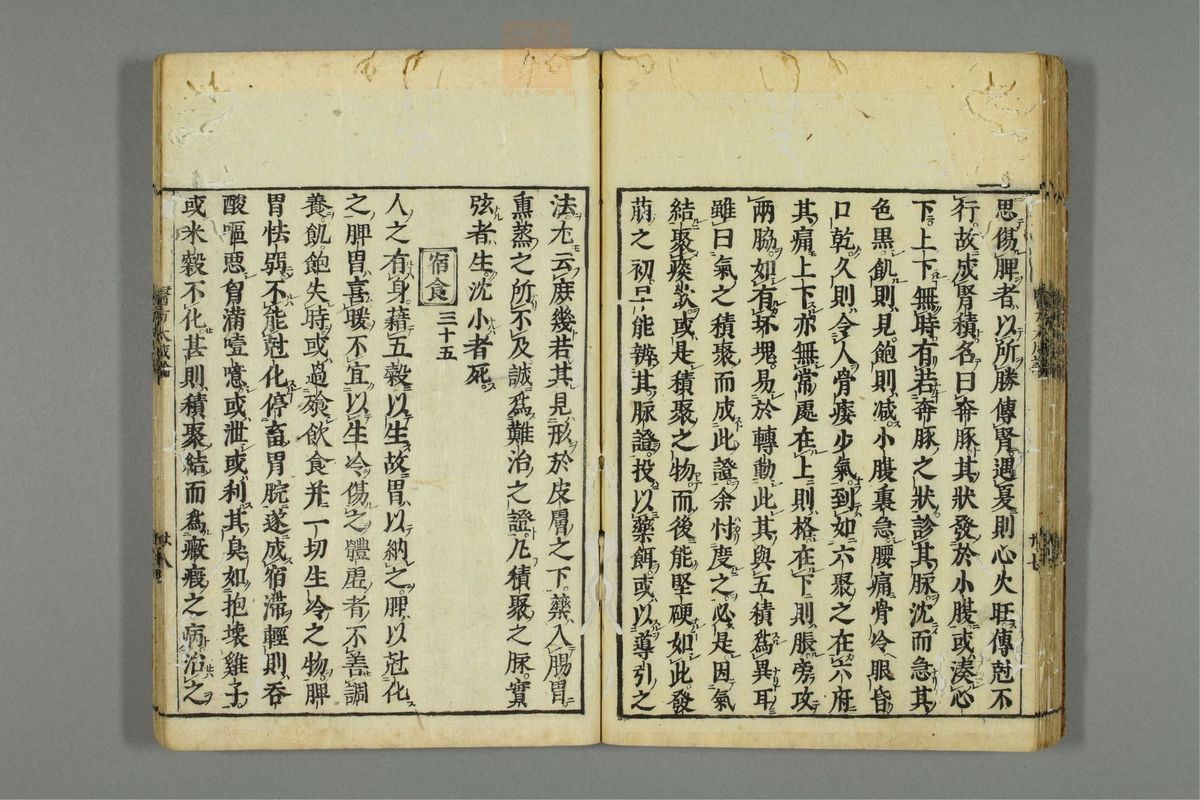 思傷脾者以所勝傳腎遇夏則心火旺傳尅不
行故成腎積名曰奔豚其狀發於小腹或湊心
下上下無時有若奔豚之狀診其脉沈而急其
色黒飢則見飽則减小腹裏急腰痛骨冷眼昏
口乾久則令人骨痿少氣到如六聚之在六府
其痛上下亦無常處在上則格在下則脹旁攻
兩脇如有坏塊易於轉動此其與五積爲異耳
雖曰氣之積聚而成此證余忖度之必是因氣
結聚痰飲或是積聚之物而後能堅硬如此發
萠之初能辨其脉證投以藥餌或以導引之
法尤云庶幾若其見形於皮膚之下藥入腸胃
熏蒸之所不及誠爲難治之證凢積聚之脉實
弦者生沈小者死
宿食 三十五
人之有身藉五穀以生故胃以納之脾以尅化
之脾胃喜暖不宜以生冷傷之體虛者不善調
養飢飽失時或過飡飲食并一切生冷之物脾
胃怯弱不能尅化停畜胃脘遂成宿滯輕則吞
酸嘔惡胷滿噎噫或泄或利其臭如抱壞雞子
或米穀不化甚則積聚結而爲癥瘕之病治之